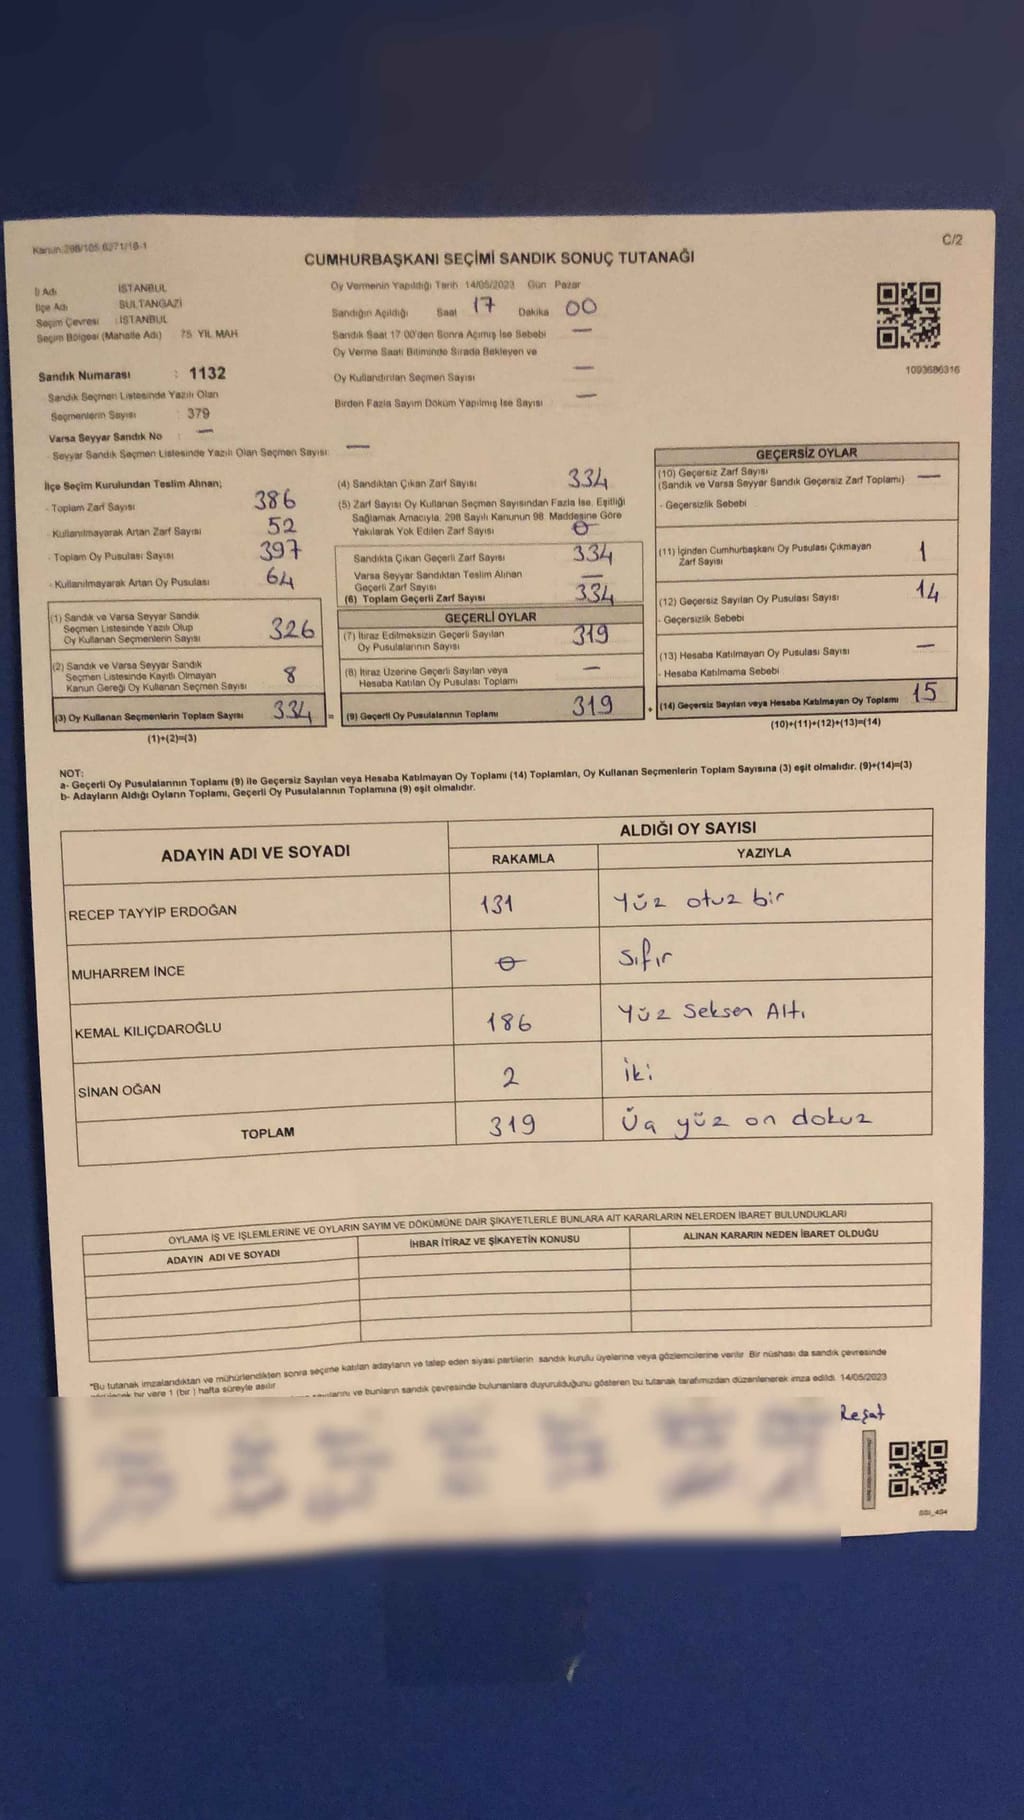 Kanun:298/105 6271/18-1
C/2
CUMHURBAŞKANI SEÇİMİ SANDIK SONUÇ TUTANAĞI
İl Adı İSTANBUL
İlçe Adı SULTANGAZİ
Seçim Çevresi İSTANBUL
Seçim Bölgesi (Mahalle Adı) 75. YIL MAH
Sandık Numarası : 1132
Sandık Seçmen Listesinde Yazılı Olan
Seçmenlerin Sayısı : 379
Varsa Seyyar Sandık No : —
- Seyyar Sandık Seçmen Listesinde Yazılı Olan Seçmen Sayısı: —
Oy Vermenin Yapıldığı Tarih 14/05/2023 Gün Pazar
Sandığın Açıldığı Saat 17 Dakika 00
Sandık Saat 17:00'den Sonra Açımış İse Sebebi —
Oy Verme Saati Bitiminde Sırada Bekleyen ve
Oy Kullandırılan Seçmen Sayısı —
Birden Fazla Sayım Döküm Yapılmış İse Sayısı —
1093686316
İlçe Seçim Kurulundan Teslim Alınan;
- Toplam Zarf Sayısı 386
- Kullanılmayarak Artan Zarf Sayısı 52
- Toplam Oy Pusulası Sayısı 397
- Kullanılmayarak Artan Oy Pusulası 64
(1) Sandık ve Varsa Seyyar Sandık
Seçmen Listesinde Yazılı Olup
Oy Kullanan Seçmenlerin Sayısı 326
(2) Sandık ve Varsa Seyyar Sandık
Seçmen Listesinde Kayıtlı Olmayan
Kanun Gereği Oy Kullanan Seçmen Sayısı 8
(3) Oy Kullanan Seçmenlerin Toplam Sayısı 334 =
(1)+(2)=(3)
(4) Sandıktan Çıkan Zarf Sayısı 334
(5) Zarf Sayısı Oy Kullanan Seçmen Sayısından Fazla İse, Eşitliği
Sağlamak Amacıyla, 298 Sayılı Kanunun 98. Maddesine Göre
Yakılarak Yok Edilen Zarf Sayısı 0
Sandıkta Çıkan Geçerli Zarf Sayısı 334
Varsa Seyyar Sandıktan Teslim Alınan
Geçerli Zarf Sayısı —
(6) Toplam Geçerli Zarf Sayısı 334
GEÇERLİ OYLAR
(7) İtiraz Edilmeksizin Geçerli Sayılan
Oy Pusulalarının Sayısı 319
(8) İtiraz Üzerine Geçerli Sayılan veya
Hesaba Katılan Oy Pusulası Toplamı —
(9) Geçerli Oy Pusulalarının Toplamı 319 +
GEÇERSİZ OYLAR
(10) Geçersiz Zarf Sayısı
(Sandık ve Varsa Seyyar Sandık Geçersiz Zarf Toplamı) —
- Geçersizlik Sebebi
(11) İçinden Cumhurbaşkanı Oy Pusulası Çıkmayan
Zarf Sayısı 1
(12) Geçersiz Sayılan Oy Pusulası Sayısı 14
- Geçersizlik Sebebi
(13) Hesaba Katılmayan Oy Pusulası Sayısı —
- Hesaba Katılmama Sebebi
(14) Geçersiz Sayılan veya Hesaba Katılmayan Oy Toplamı 15
(10)+(11)+(12)+(13)=(14)
NOT:
a- Geçerli Oy Pusulalarının Toplamı (9) ile Geçersiz Sayılan veya Hesaba Katılmayan Oy Toplamı (14) Toplamları, Oy Kullanan Seçmenlerin Toplam Sayısına (3) eşit olmalıdır. (9)+(14)=(3)
b- Adayların Aldığı Oyların Toplamı, Geçerli Oy Pusulalarının Toplamına (9) eşit olmalıdır.
ADAYIN ADI VE SOYADI
ALDIĞI OY SAYISI
RAKAMLA YAZIYLA
RECEP TAYYİP ERDOĞAN 131 Yüz otuz bir
MUHARREM İNCE 0 Sıfır
KEMAL KILIÇDAROĞLU 186 Yüz Seksen Altı
SİNAN OĞAN 2 iki
TOPLAM 319 Üç yüz on dokuz
OYLAMA İŞ VE İŞLEMLERİNE VE OYLARIN SAYIM VE DÖKÜMÜNE DAİR ŞİKAYETLERLE BUNLARA AİT KARARLARIN NELERDEN İBARET BULUNDUKLARI
ADAYIN ADI VE SOYADI İHBAR İTİRAZ VE ŞİKAYETİN KONUSU ALINAN KARARIN NEDEN İBARET OLDUĞU
*Bu tutanak imzalandıktan ve mühürlendikten sonra seçime katılan adayların ve talep eden siyasi partilerin sandık kurulu üyelerine veya gözlemcilerine verilir. Bir nüshası da sandık çevresinde
bir yere 1 (bir) hafta süreyle asılır.
ve bunların sandık çevresinde bulunanlara duyurulduğunu gösteren bu tutanak tarafımızdan düzenlenerek imza edildi. 14/05/2023
Reşat